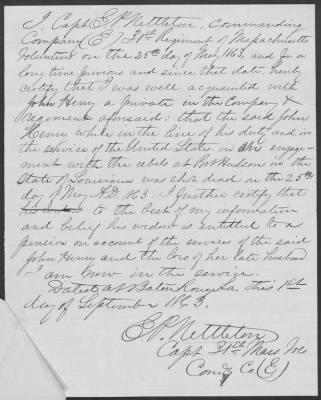 I, Capt E. P. Nettleton, Commanding
Company (E) 31st Regiment of Massachusetts
Volunteers on the 25th day of May 1863, and for a
long time previous and since that date, hereby
certify that I was well acquainted with
John Henry a private in the Company &
Regiment aforesaid: that the said John
Henry while in the line of his duty, and in
the service of the United States, in an engage-
ment with the rebels at Port Hudson in the
State of Louisiana was shot dead on the 25th
day of May A.D. 1863. I further certify that
to the best of my information
and belief his widow is entitled to a
pension on account of the services of the said
John Henry and the loss of her late husband.
I am now in the service.
Dated at Baton Rouge La. this 1st
day of September 1863.
E. P. Nettleton
Capt 31st Mass Vols
Comdg Co (E)